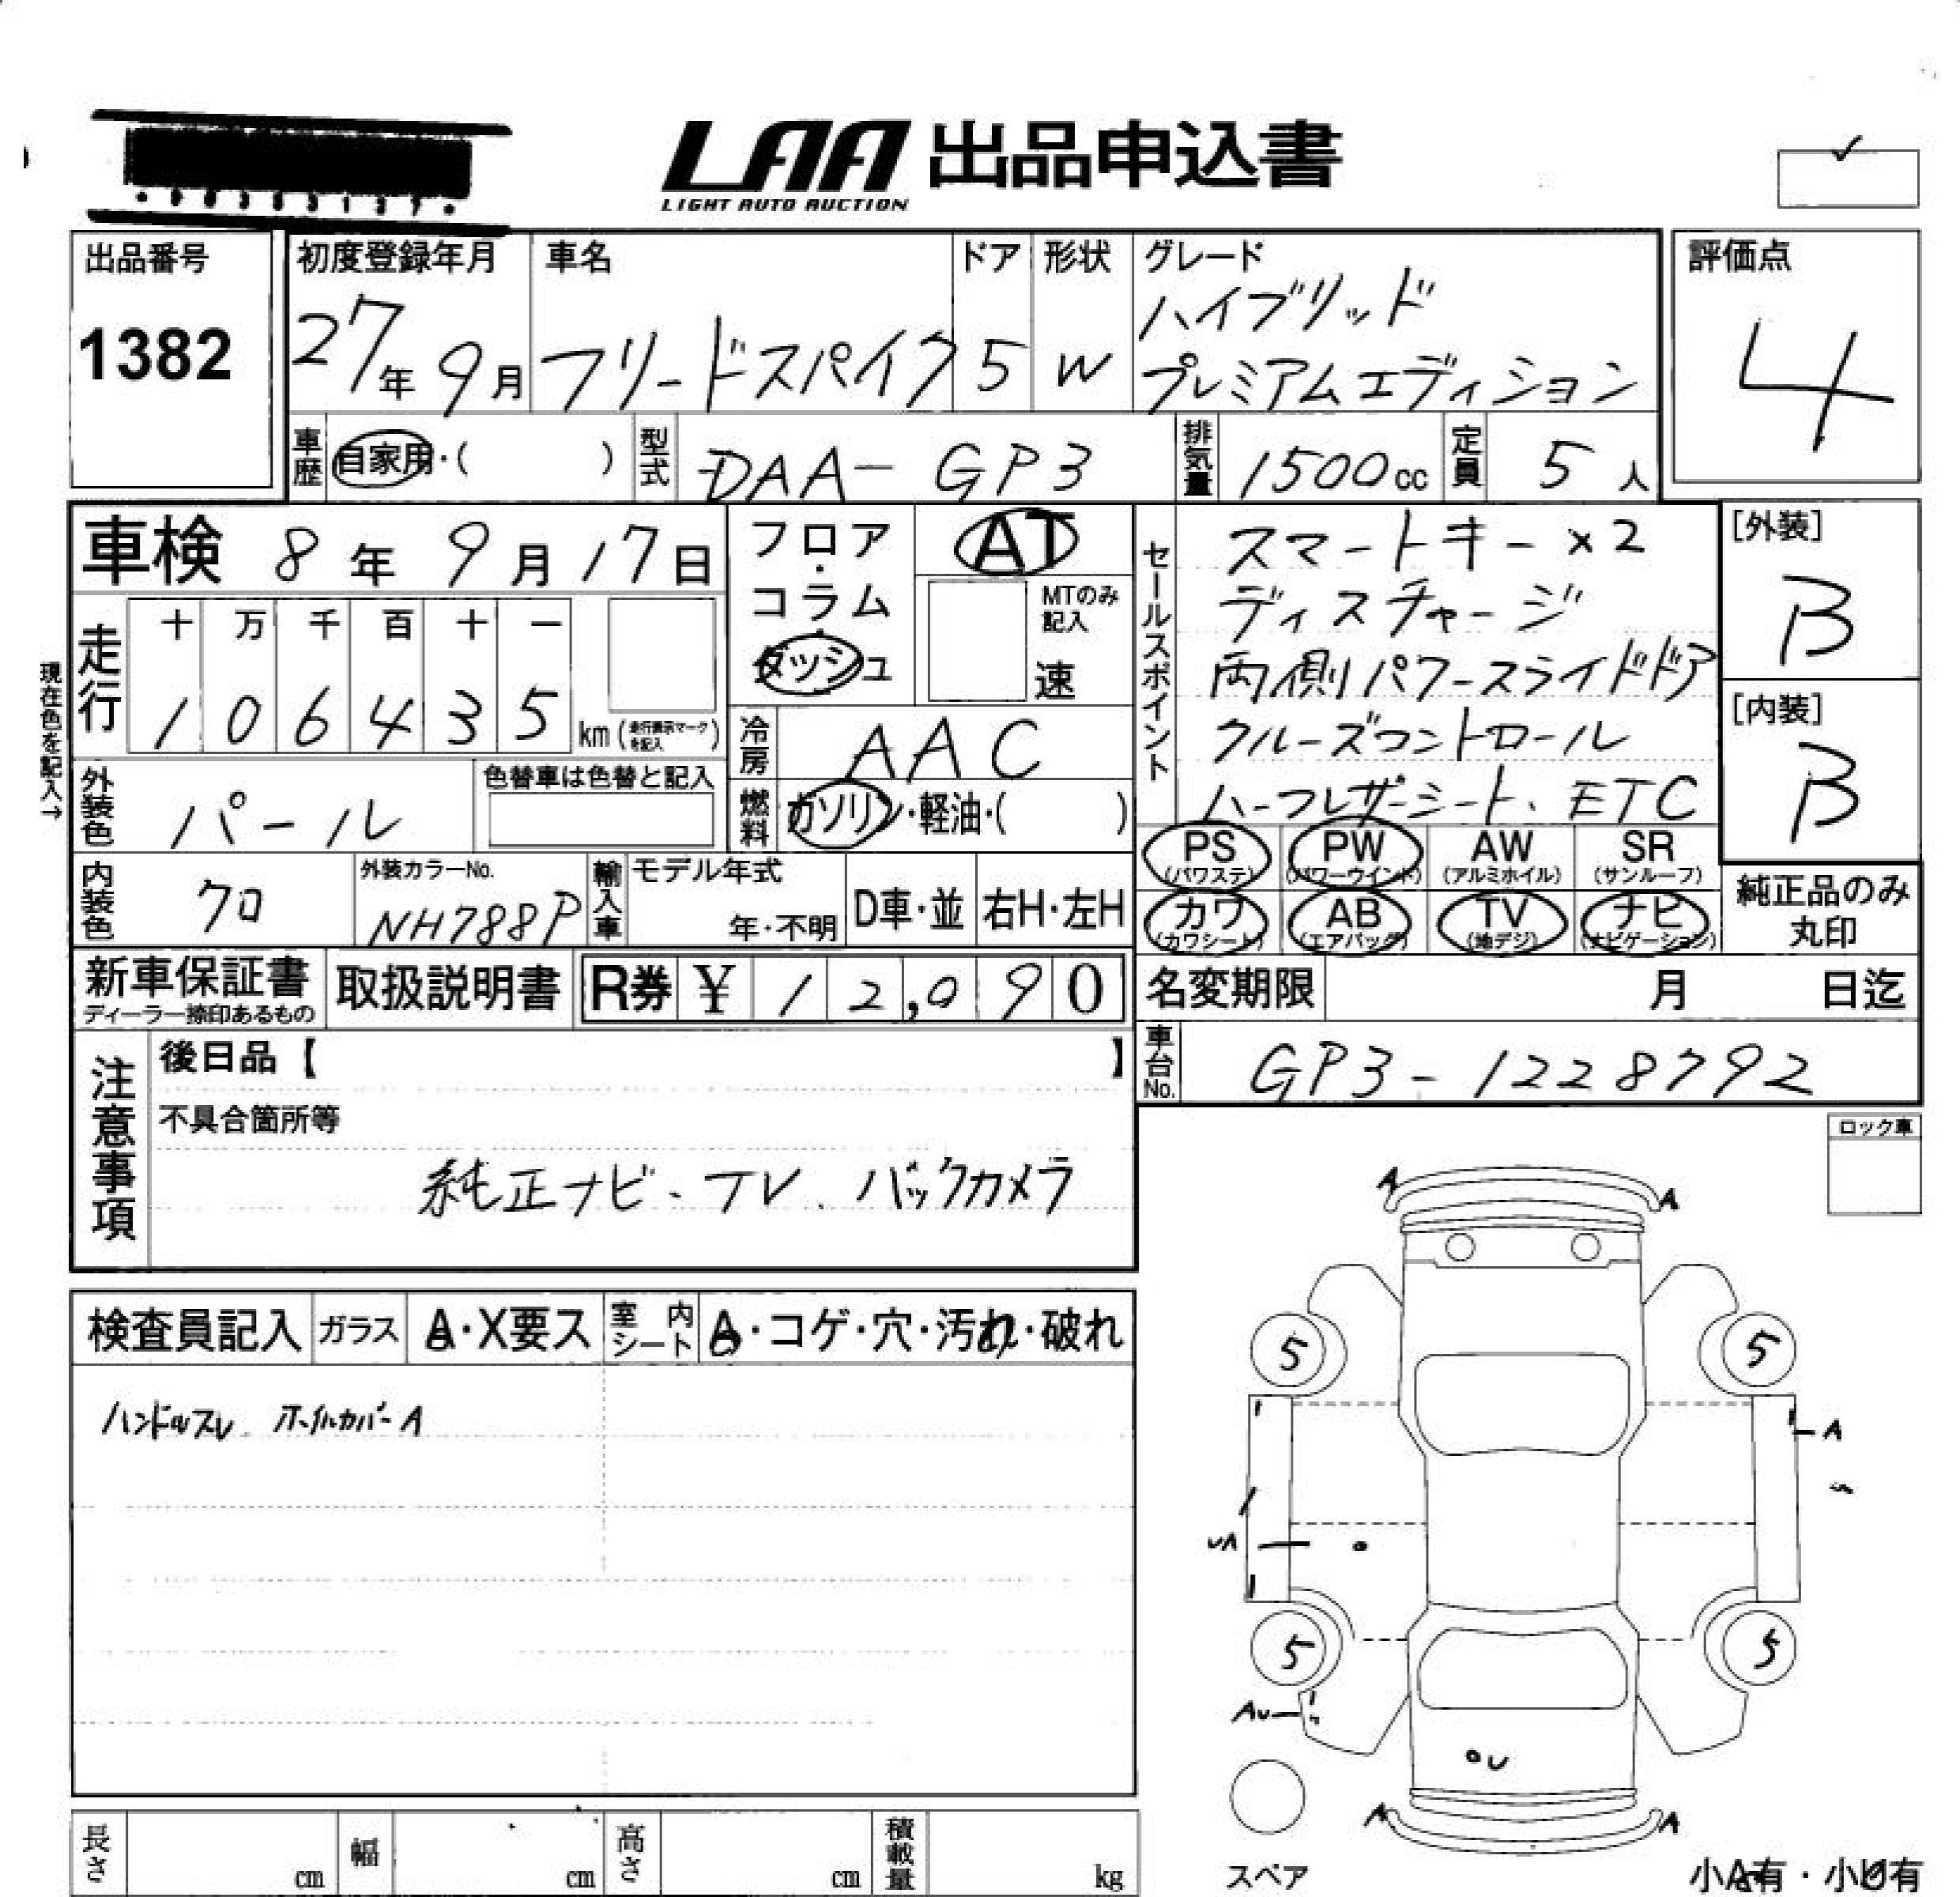 LAA 出品申込書
LIGHT AUTO AUCTION
出品番号
1382
初度登録年月
27年 9月
車名
フリードスパイク
ドア
5
形状
W
グレード
ハイブリッド
プレミアムエディション
評価点
4
車歴 自家用・( )
型式 DAA-GP3
排気量 1500cc
定員 5人
車検 8年 9月 17日
フロア・コラム・ダッシュ
AT
MTのみ記入
速
現在色を記入→
走行 十 万 千 百 十 一
1 0 6 4 3 5 km (走行表示マークを記入)
冷房 AAC
外装色 パール
色替車は色替と記入
燃料 ガソリン・軽油・( )
内装色 クロ
外装カラーNo.
NH788P
輸入車
モデル年式
年・不明
D車・並
右H・左H
セールスポイント
スマートキー×2
ディスチャージ
両側パワースライドドア
クルーズコントロール
ハーフレザーシート、ETC
[外装]
B
[内装]
B
PS (パワステ)
PW (パワーウインド)
AW (アルミホイル)
SR (サンルーフ)
カワ (カワシート)
AB (エアバッグ)
TV (地デジ)
ナビ (ナビゲーション)
純正品のみ
丸印
新車保証書
ディーラー捺印あるもの
取扱説明書
R券 ¥ 12,090
名変期限 月 日迄
車台No. GP3-1228792
注意事項
後日品【 】
不具合箇所等
純正ナビ、TV、バックカメラ
ロック車
検査員記入
ガラス A・X要ス
室内シート A・コゲ・穴・汚れ・破れ
ハンドルスレ ホイルカバーA
A
A
5
5
A
UA
5
5
AU
U
A
A
スペア
小A有・小U有
長さ cm
幅 cm
高さ cm
積載量 kg